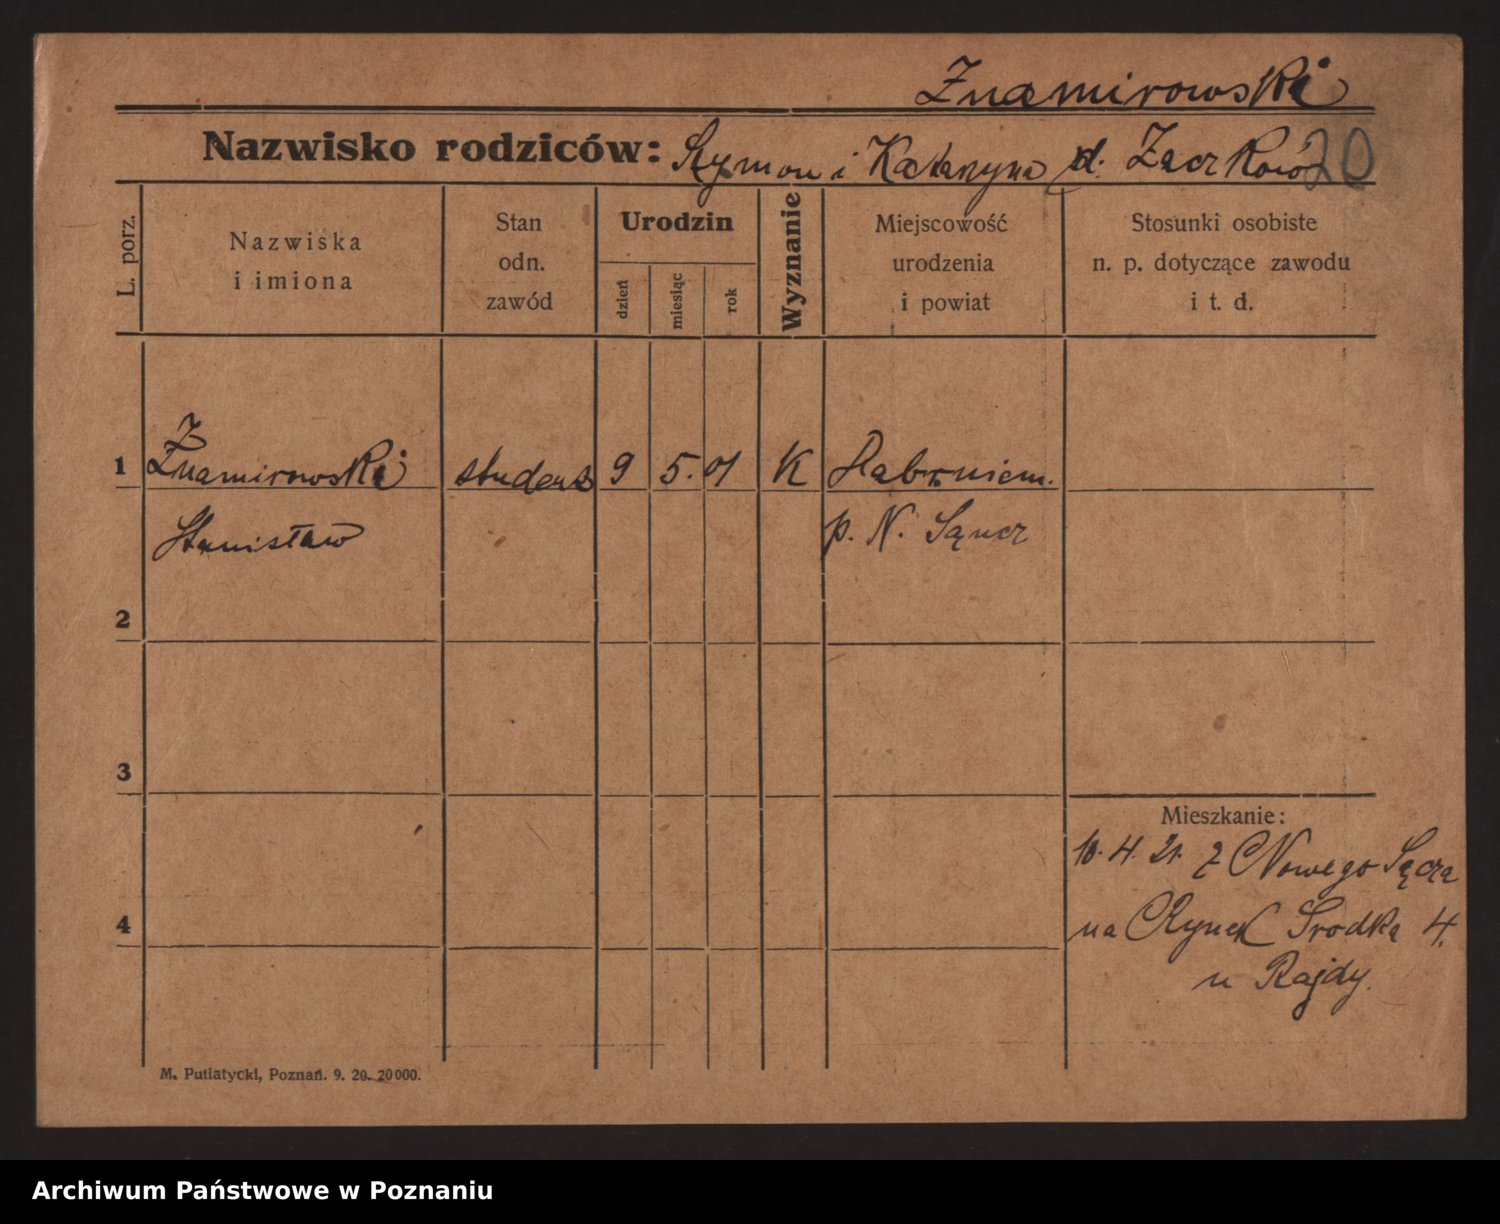 Znamirowski
Nazwisko rodziców: Szymon i Katarzyna d. Zaczków 20
L. porz.
Nazwiska
i imiona
Stan
odn.
zawód
Urodzin
dzień
miesiąc
rok
Wyznanie
Miejscowość
urodzenia
i powiat
Stosunki osobiste
n. p. dotyczące zawodu
i t. d.
1 Znamirowski student 9 5. 01 K
Stanisław p. N. Sącz
2
3
Mieszkanie:
10. 4. 21. z Nowego Sącza
4
na Rynek Srodka 4.
u Rajdy.
M. Putiatycki, Poznań. 9. 20. 20000.
Archiwum Państwowe w Poznaniu